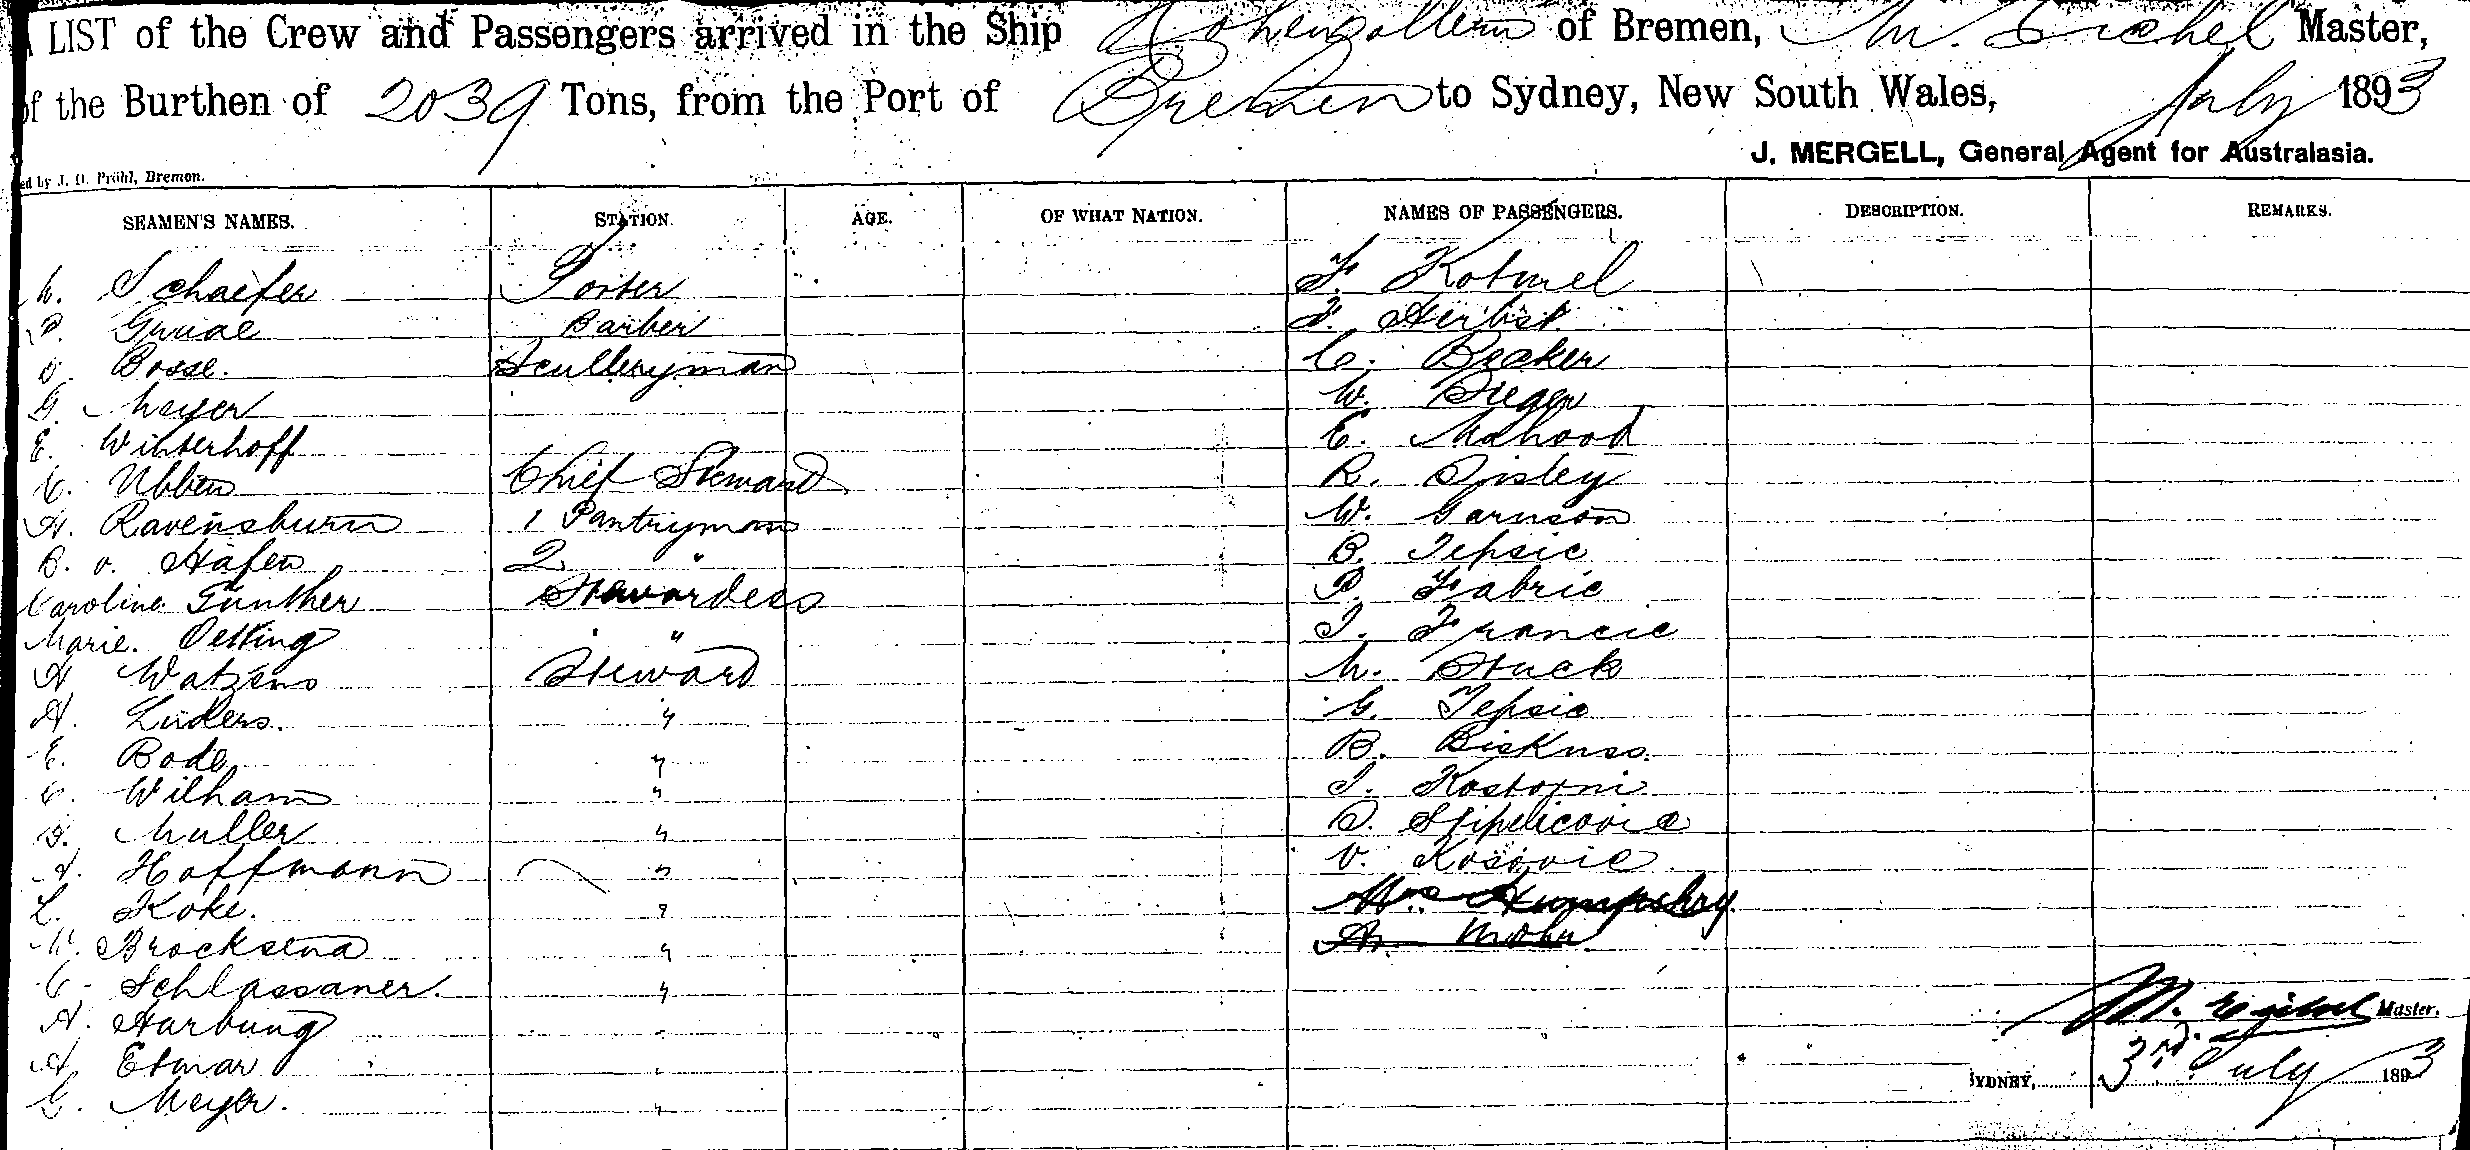 A LIST of the Crew and Passengers arrived in the Ship Hohenzollern of Bremen, M. Eichel Master,
of the Burthen of 2039 Tons, from the Port of Bremen to Sydney, New South Wales, July 1893
J. MERGELL, General Agent for Australasia.
ed by J. O. Pröhl, Bremen.
SEAMEN'S NAMES. STATION. AGE. OF WHAT NATION. NAMES OF PASSENGERS. DESCRIPTION. REMARKS.
Schaefer Porter F. Kotmel
Barber F. Herbst
Bosse. Sculleryman C. Becker
G. Meyer W. Sieger
E. Winterhoff E. Mahood
C. Ubben Chief Steward R. Sisley
H. Ravensburn 1 Pantryman W. Garnson
B. v. Hafen 2 " B. Tepsic
Caroline Gunther Stewardess P. Fabric
Marie. Oetking " I. Francic
H Watzens Steward M. Stuck
H. Lüders. " G. Tepsic
E. Bode " B. Biskuss.
C. Wilham " I. Kostorni
Muller " S. Stipelicovic
Hoffmann " V. Kosovic
L. Koke. " Mrs Humpshry
W. Brocksena " M. Mohr
C. Schlassaner. "
A. Harbung "
A. Etmar "
G. Meyer. "
M. Eichel Master.
SYDNEY, 3rd July 1893